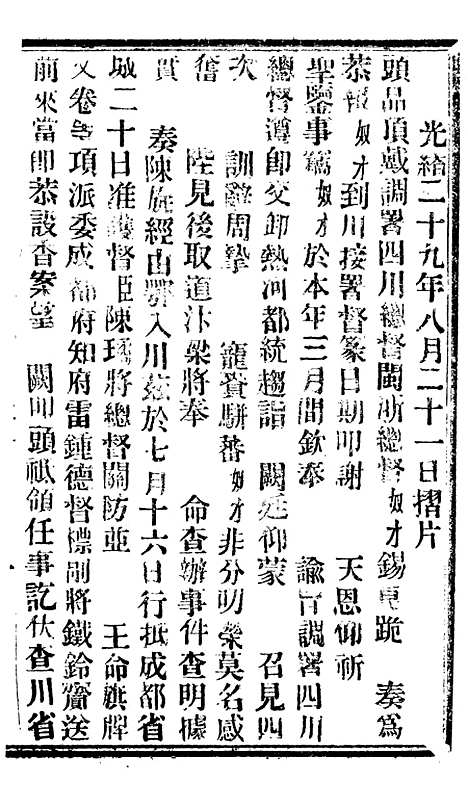 光緒二十九年八月二十一日摺片
頭品頂戴調署四川總督閩浙總督奴才錫良跪 奏爲
恭報奴才到川接署督篆日期叩謝 天恩仰祈
聖鑒事竊奴才於本年三月間欽奉 諭旨調署四川
總督遵卽交卸熱河都統趨詣 闕廷仰蒙 召見四
次 訓辭周摯 寵賚駢蕃奴才非分叨榮莫名感
奮 陛見後取道汴梁將奉 命查辦事件查明據
實 奏陳旋經由鄂入川茲於七月十六日行抵成都省
城二十日准護督臣陳璚將總督關防並 王命旗牌
文卷等項派委成都府知府雷鍾德督標副將鐵鈴齎送
前來當卽恭設香案望 闕叩頭祗領任事訖伏查川省